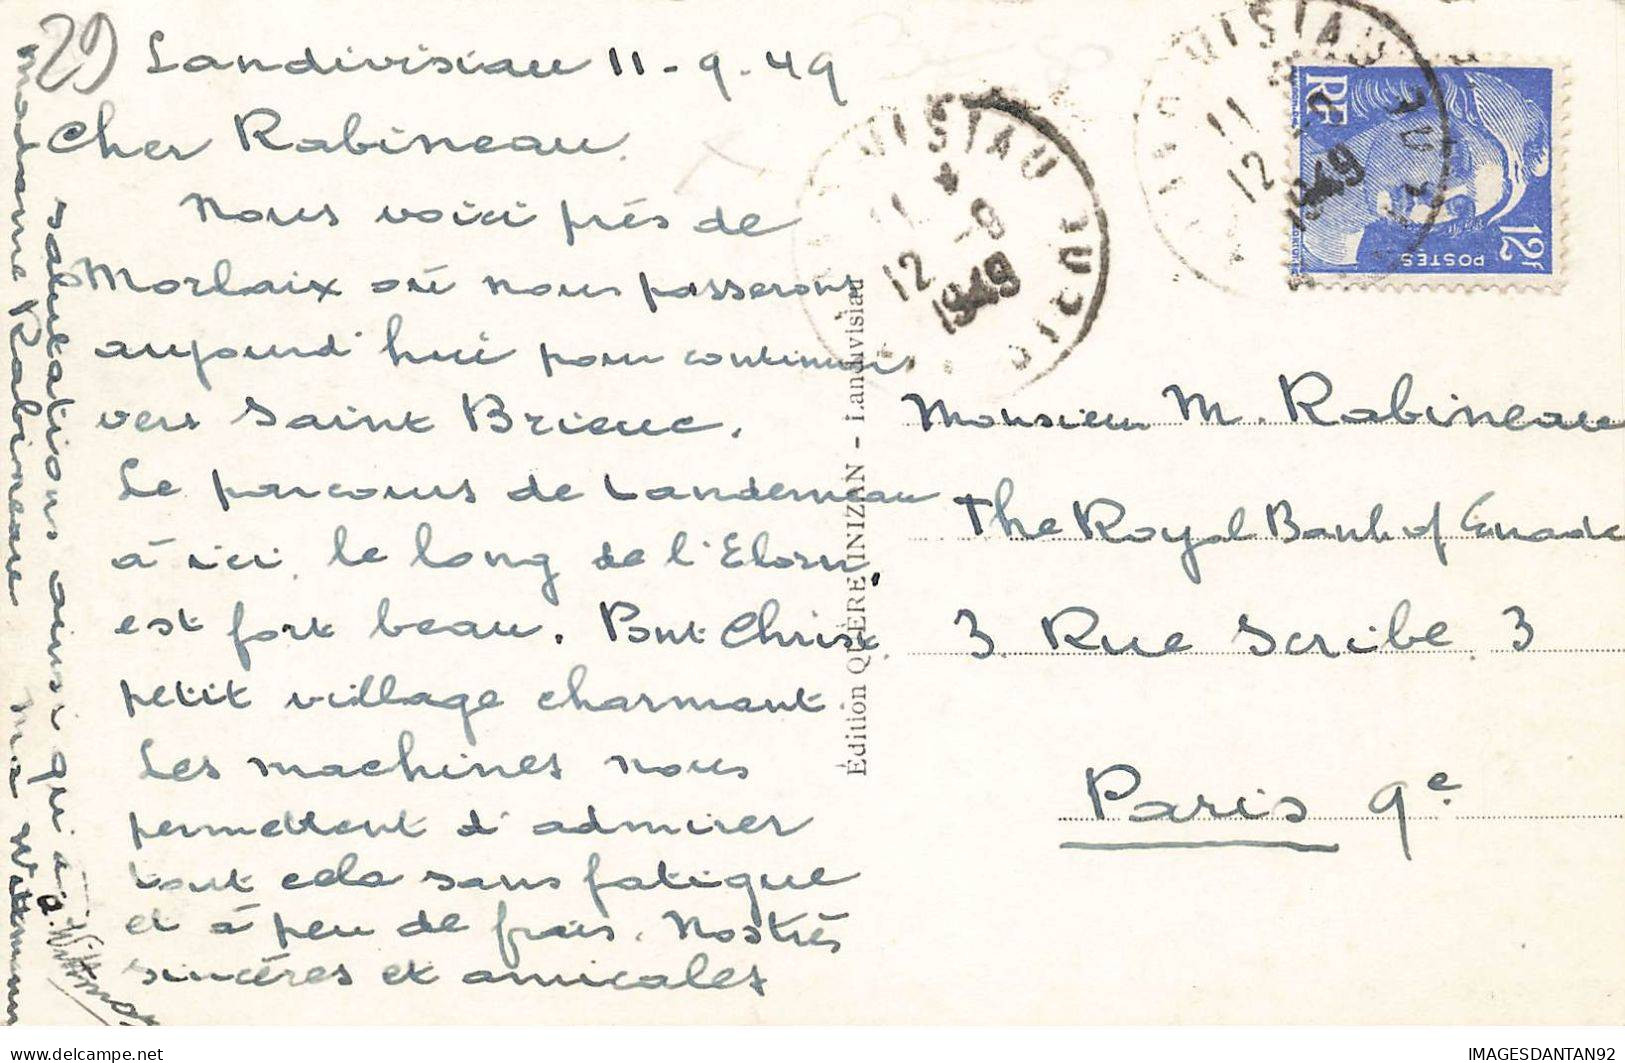 29
Landivisiau 11-9-49
Cher Rabineau.
Nous voici près de
Morlaix où nous passerons
aujourd'hui pour continuer
vers Saint Brieuc.
Le parcours de Landerneau
à ici, le long de l'Elorn,
est fort beau. Pont Christ,
petit village charmant.
Les machines nous
permettent d'admirer
tout cela sans fatigue
et à peu de frais. Nos très
sincères et amicales
salutations ainsi qu'à
Madame Rabineau
Mr Wittmann
Wittmann
Edition QUÉRÉ INIZAN - Landivisiau
VISIAU
11 *
12 -9
1949
VISIAU
11
12 -9
1949
RF
POSTES
12F
Monsieur M. Rabineau
The Royal Bank of Canada
3 Rue Scribe, 3
Paris 9e
delcampe.net
IMAGESDANTAN92